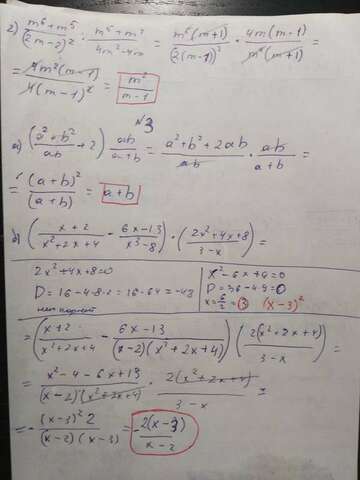 г) (m⁶+m⁵)/(2m-2)² : (m⁵+m⁴)/(4m²-4m) = m⁵(m+1)/(2(m-1))² · 4m(m-1)/(m⁴(m+1)) =
= 4m²(m-1)/(4(m-1)²) = m²/(m-1)
№3
а) ((a²+b²)/ab + 2) · ab/(a+b) = (a²+b²+2ab)/ab · ab/(a+b) =
= (a+b)²/(a+b) = a+b
б) ((x+2)/(x²+2x+4) - (6x-13)/(x³-8)) · ((2x²+4x+8)/(3-x)) =
2x²+4x+8=0
D=16-4·8·2=16-64=-48
нет корней
x²-6x+9=0
D=36-4·9=0
x=6/2=3 (x-3)²
= ((x+2)/(x²+2x+4) - (6x-13)/((x-2)(x²+2x+4))) (2(x²+2x+4)/(3-x)) =
= (x²-4-6x+13)/((x-2)(x²+2x+4)) · 2(x²+2x+4)/(3-x) =
= -(x-3)²2/((x-2)(x-3)) = -2(x-3)/(x-2)